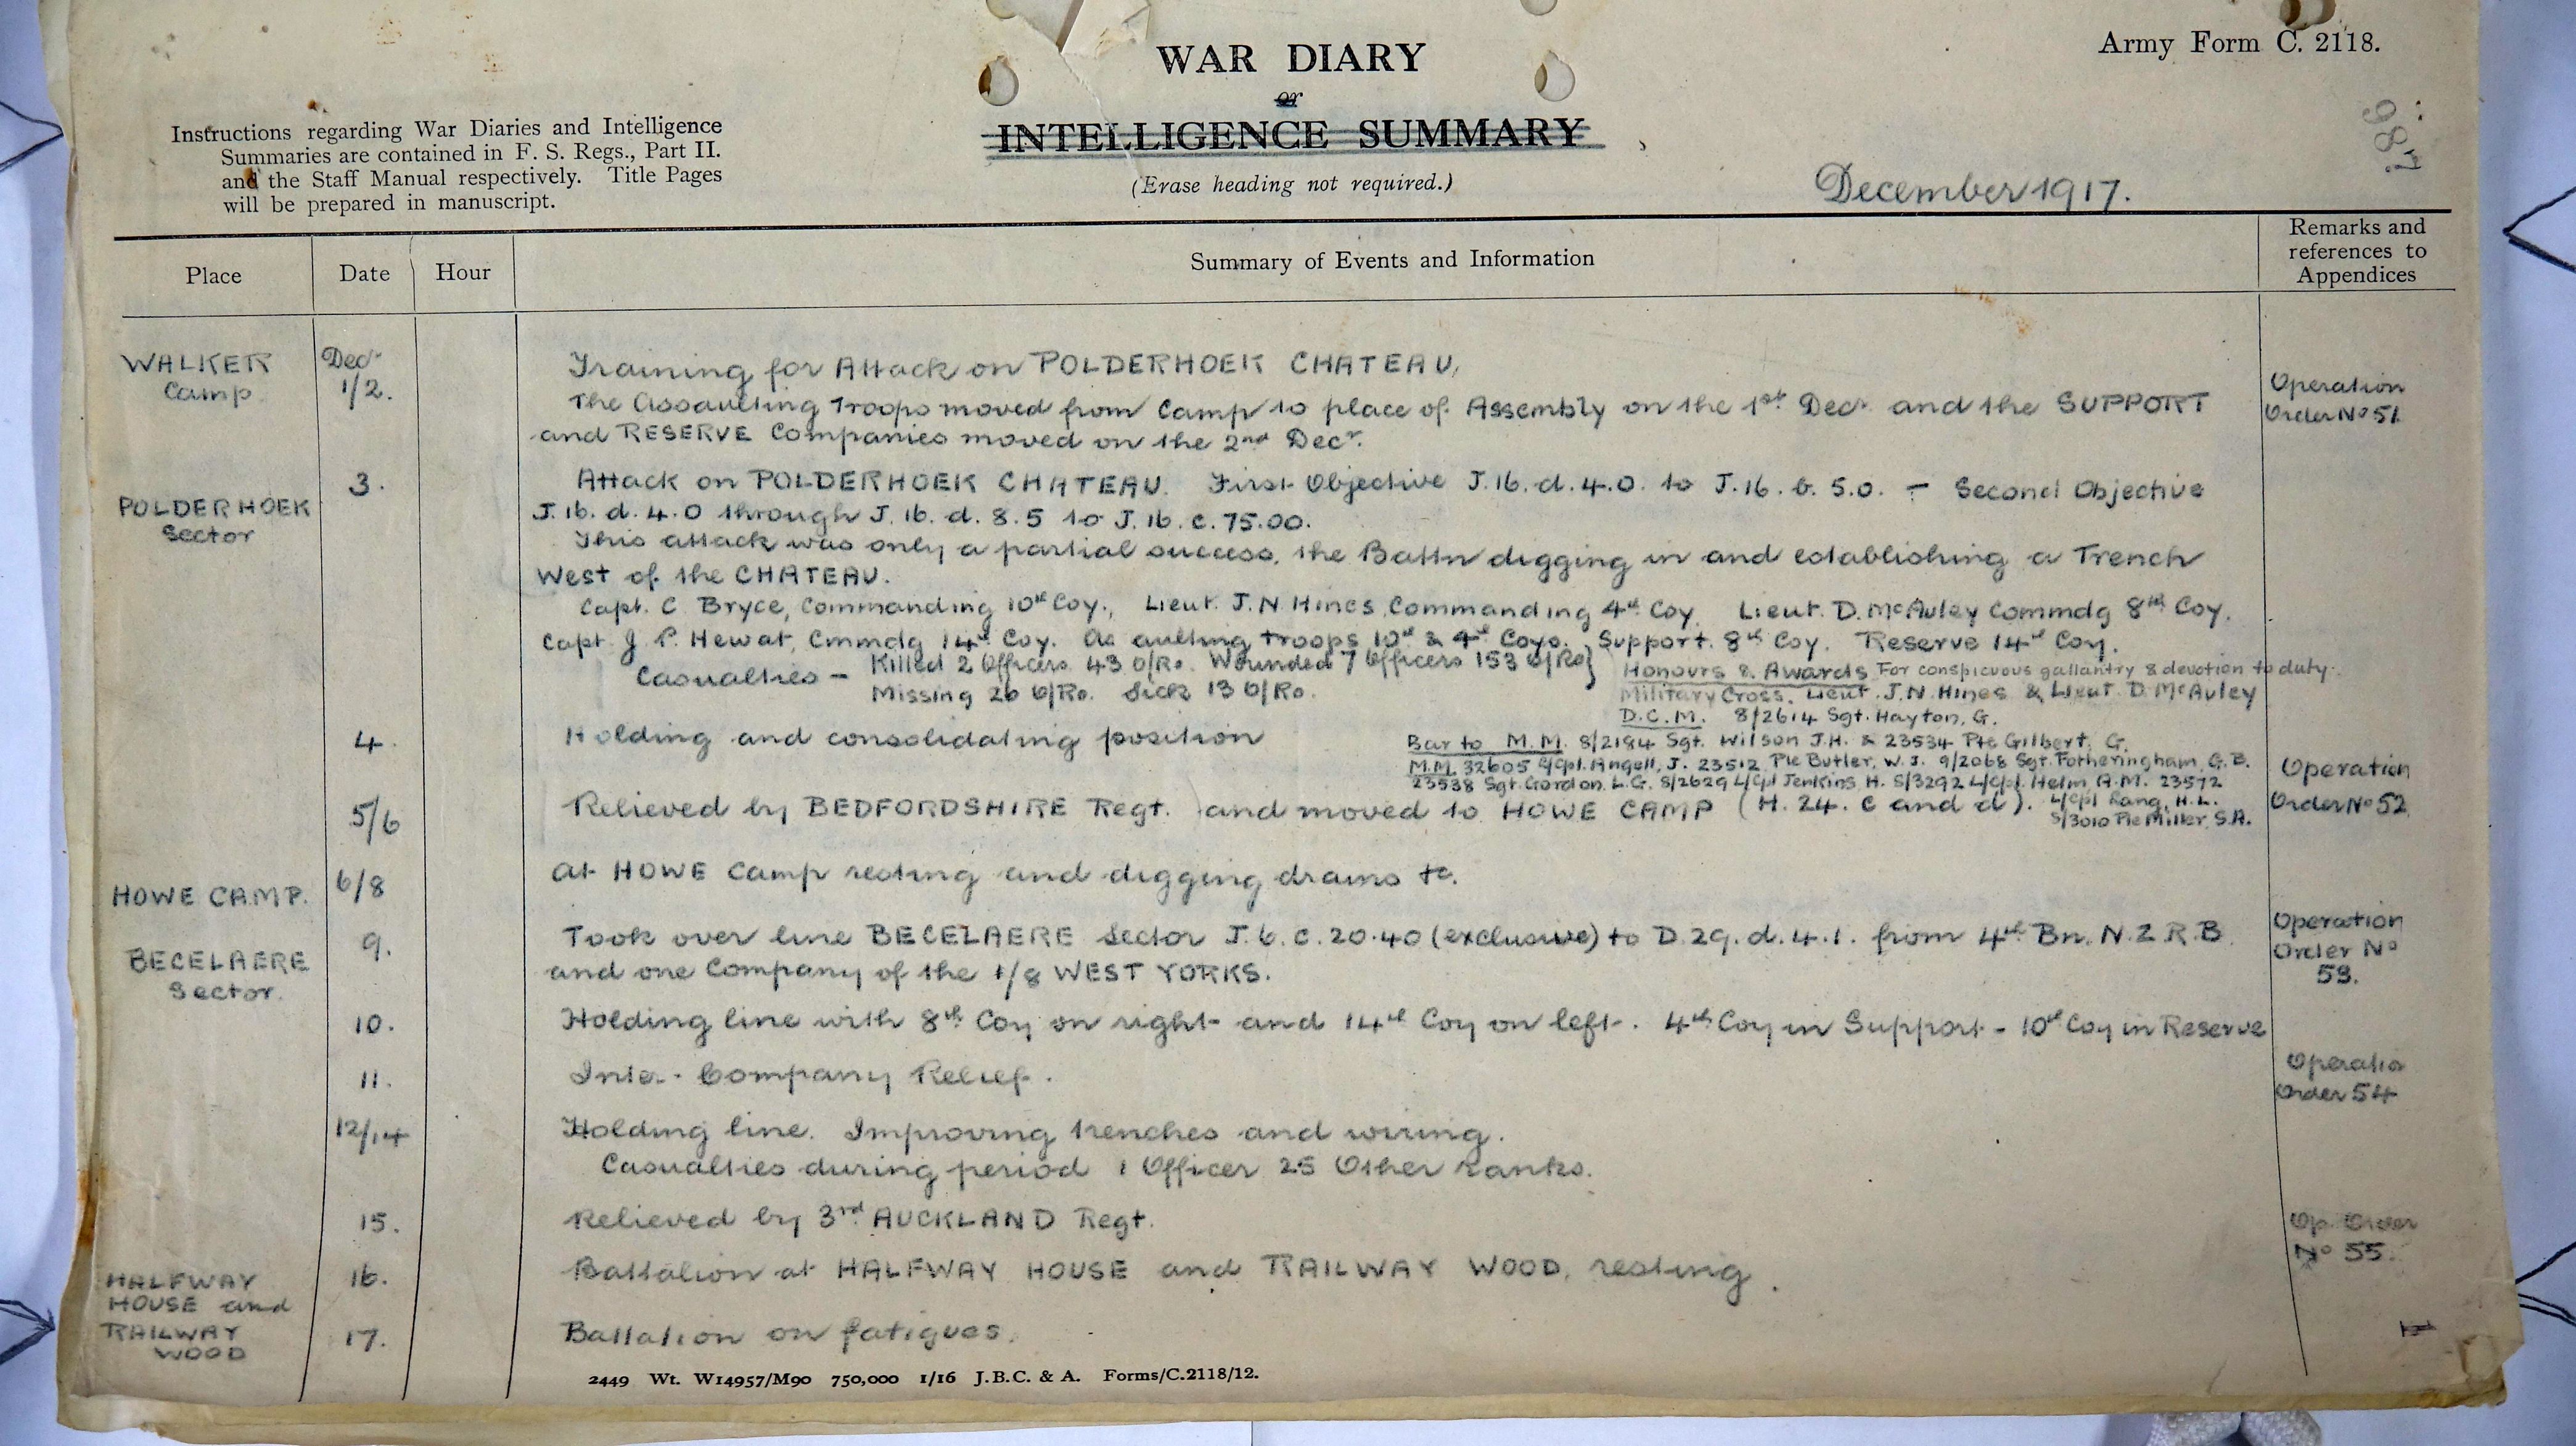 WAR DIARY
or
INTELLIGENCE SUMMARY
(Erase heading not required.)
Army Form C. 2118.
Instructions regarding War Diaries and Intelligence
Summaries are contained in F. S. Regs., Part II.
and the Staff Manual respectively. Title Pages
will be prepared in manuscript.
December 1917.
Place Date Hour Summary of Events and Information Remarks and
references to
Appendices
WALKER
Camp
Decr
1/2.
Training for Attack on POLDERHOEK CHATEAU.
The Assaulting Troops moved from Camp to place of Assembly on the 1st Decr and the SUPPORT
and RESERVE Companies moved on the 2nd Decr.
Operation
Order No 51
POLDERHOEK
Sector
3.
Attack on POLDERHOEK CHATEAU. First Objective J.16.d.4.0. to J.16.b.5.0. - Second Objective
J.16.d.4.0 through J.16.d.8.5 to J.16.c.75.00.
This attack was only a partial success, the Battn digging in and establishing a Trench
West of the CHATEAU.
Capt. C Bryce, Commanding 10th Coy., Lieut. J.N Hines Commanding 4th Coy Lieut. D. McAuley Commdg 8th Coy.
Capt. J. P. Hewat, Cmmdg 14th Coy. As aulting troops 10th & 4th Coys. Support. 8th Coy. Reserve 14th Coy.
Casualties - Killed 2 Officers 43 O/Rs. Wounded 7 Officers 153 O/Rs }
Missing 26 O/Rs. Sick 13 O/Rs.
Honours & Awards For conspicuous gallantry & devotion to duty.
Military Cross. Lieut. J.N. Hines & Lieut. D. McAuley
D.C.M. 8/2614 Sgt. Hayton, G.
4. Holding and consolidating position
Bar to M.M. 8/2184 Sgt. Wilson J.H. & 23534 Pte Gilbert, G.
M.M. 32605 L/Cpl. Angell, J. 23512 Pte Butler, W.J. 9/2068 Sgt. Fotheringham, G.B.
23538 Sgt. Gordon. L.G. 8/2629 L/Cpl Jenkins H. 8/3292 L/Cpl. Helm A.M. 23572
L/Cpl Rang, H.L.
8/3010 Pte Miller, S.A.
5/6 Relieved by BEDFORDSHIRE Regt. and moved to HOWE CAMP (H.24. c and d).
Operation
Order No 52
HOWE CAMP. 6/8 at HOWE Camp resting and digging drains &c.
BECELAERE
Sector.
9. Took over line BECELAERE Sector J.6.c.20.40 (exclusive) to D.29.d.4.1. from 4th Bn. N.Z.R.B
and one Company of the 1/8 WEST YORKS.
Operation
Order No
53.
10. Holding line with 8th Coy on right and 14th Coy on left. 4th Coy in Support - 10th Coy in Reserve
11. Inter-Company Relief.
Operatio
Order 54
12/14 Holding line. Improving trenches and wiring.
Casualties during period 1 Officer 25 Other Ranks.
15. Relieved by 3rd AUCKLAND Regt.
Op. Order
No 55.
HALFWAY
HOUSE and
RAILWAY
WOOD
16. Battalion at HALFWAY HOUSE and RAILWAY WOOD, resting.
17. Battalion on fatigues.
2449 Wt. W14957/M90 750,000 1/16 J.B.C. & A. Forms/C.2118/12.